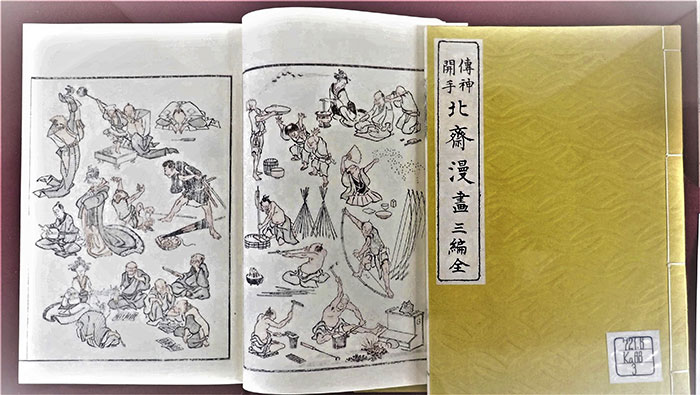 傳神
開手
北齋漫畫 三編全
721.8
Ka88
3